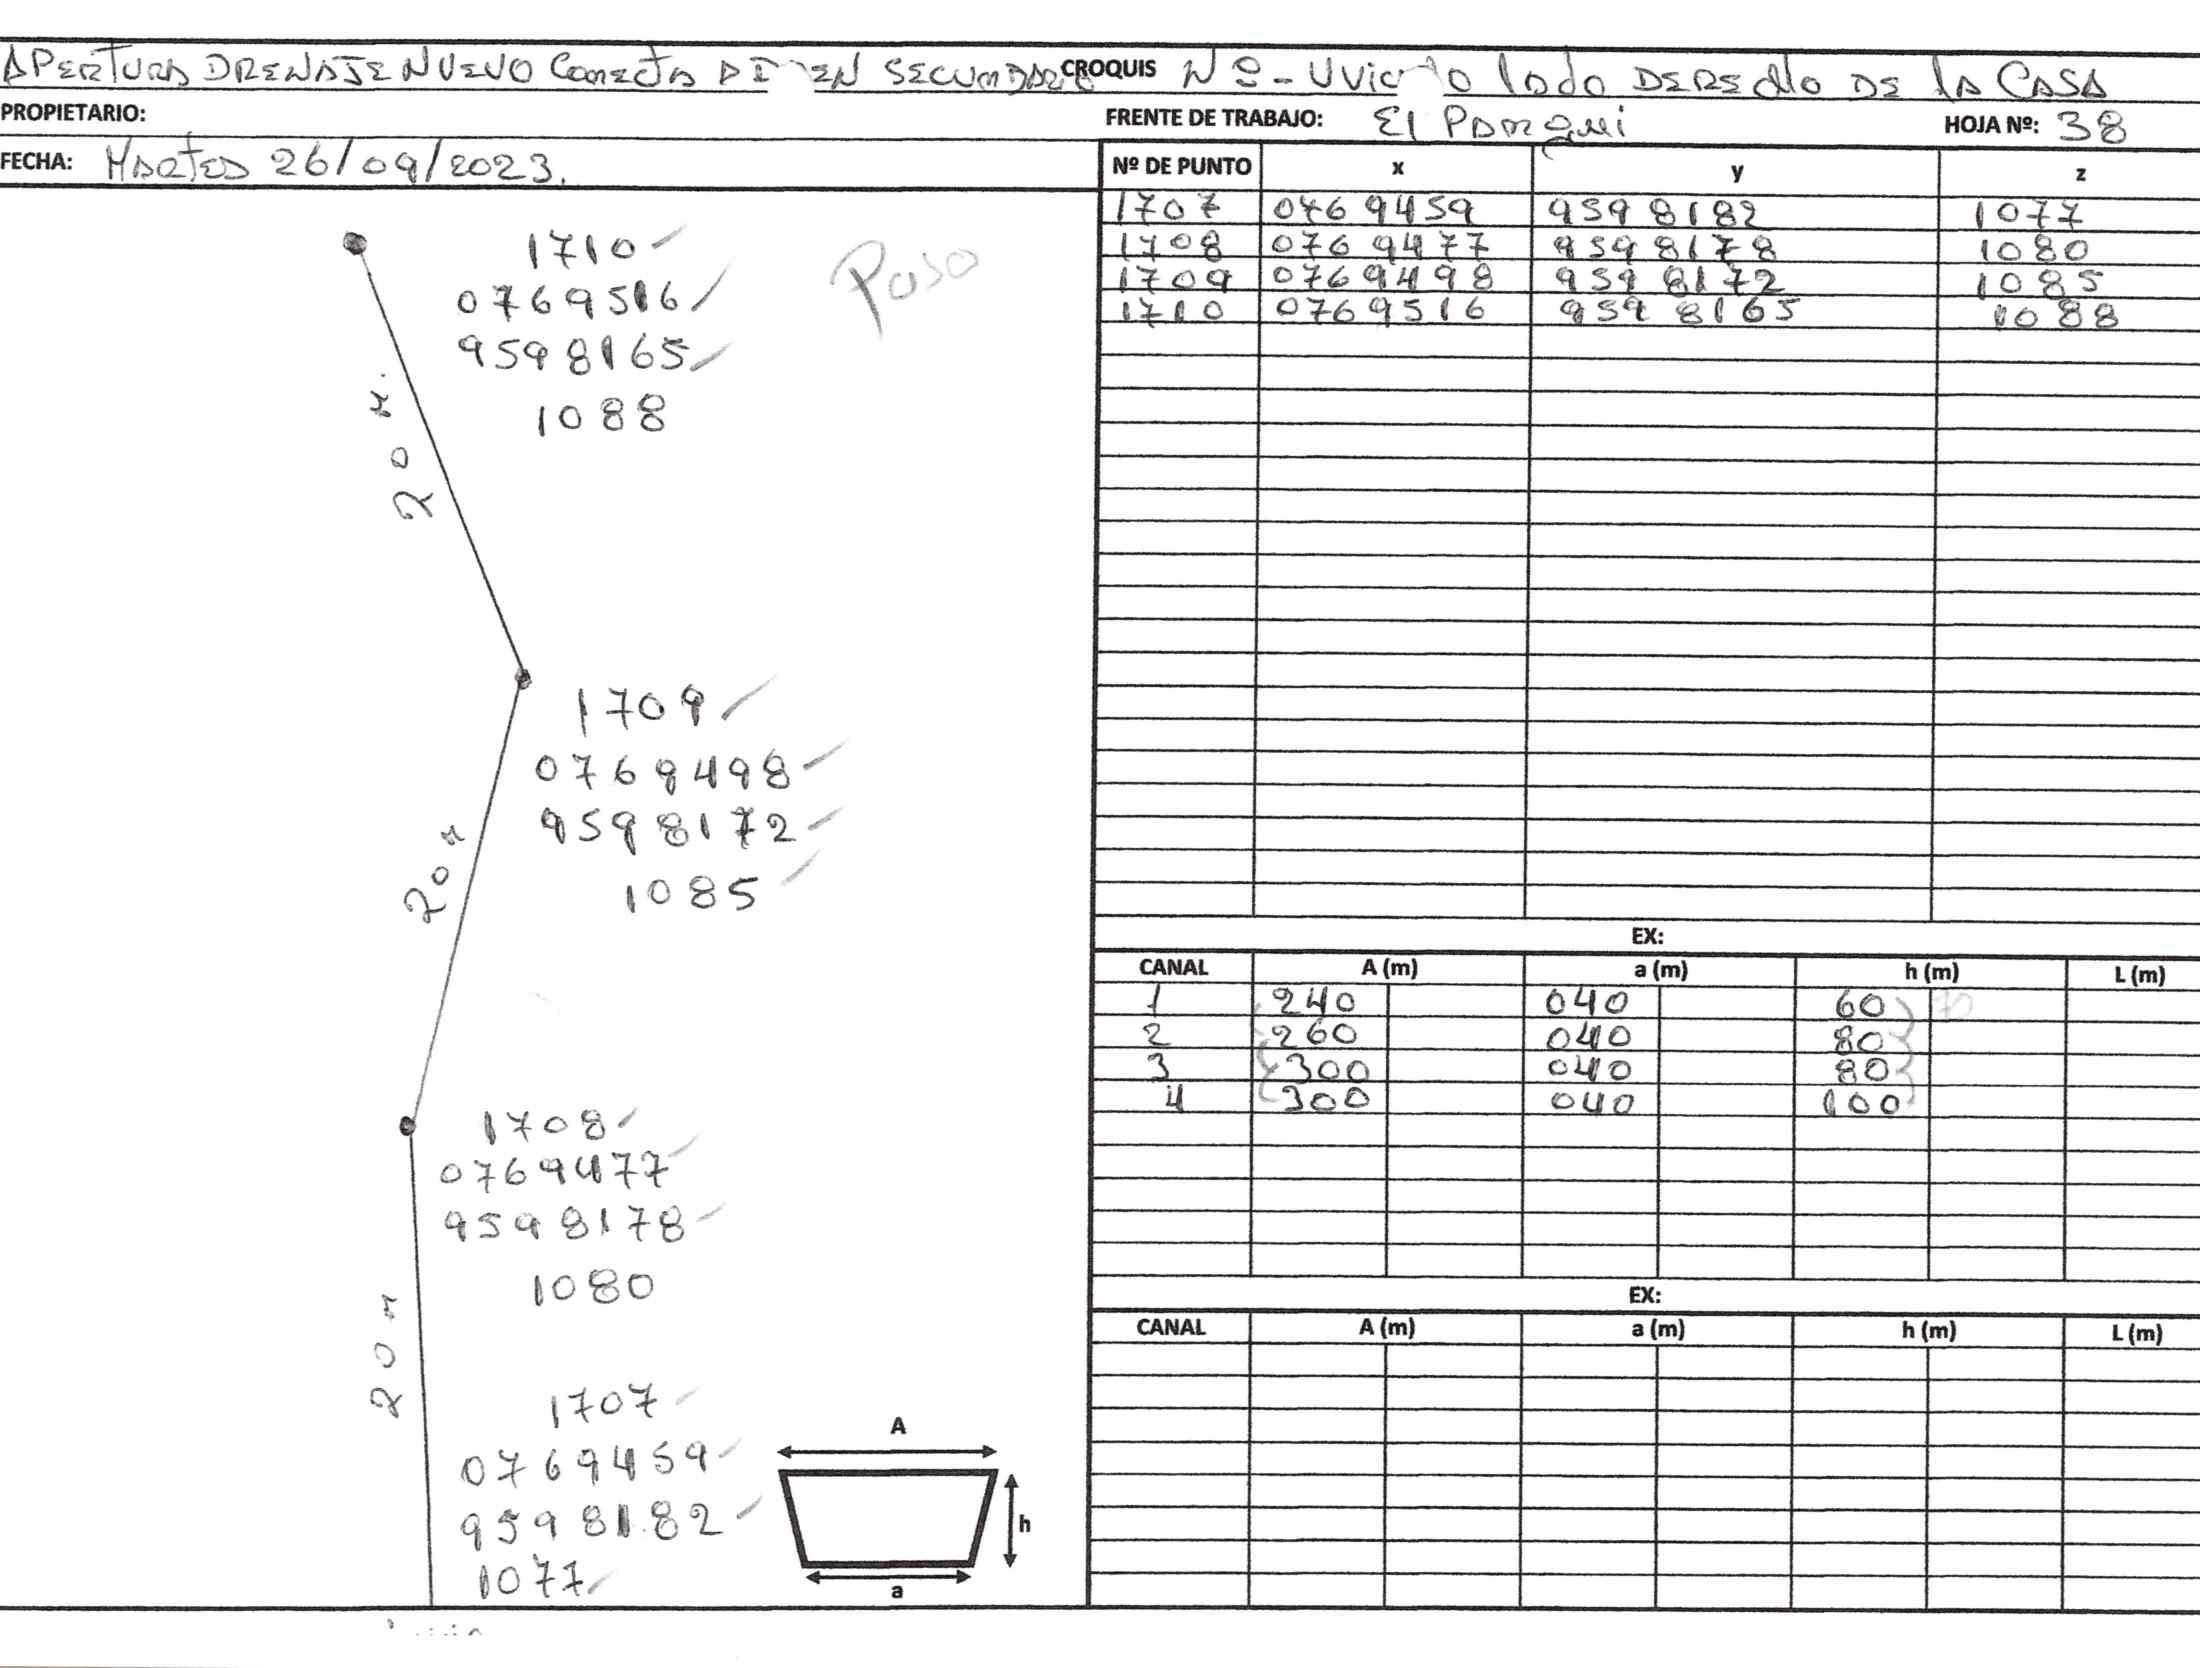 APERTURA DRENAJE NUEVO Conecta EN SECUNDARIO CROQUIS Nº lado DERECHO DE LA CASA
PROPIETARIO:
FRENTE DE TRABAJO: El Pangui
HOJA Nº: 38
FECHA: MARTES 26/09/2023.
1710
0769516
9598165
1088
Paso
20 M.
1709
0769498
9598172
1085
20 M
1708
0769477
9598178
1080
20 M
1707
0769459
9598182
1077
A
h
a
Nº DE PUNTO x y z
1707 0769459 9598182 1077
1708 0769477 9598178 1080
1709 0769498 9598172 1085
1710 0769516 9598165 1088
EX:
CANAL A (m) a (m) h (m) L (m)
1 240 040 60 70
2 260 040 80
3 300 040 80
4 300 040 100
EX:
CANAL A (m) a (m) h (m) L (m)